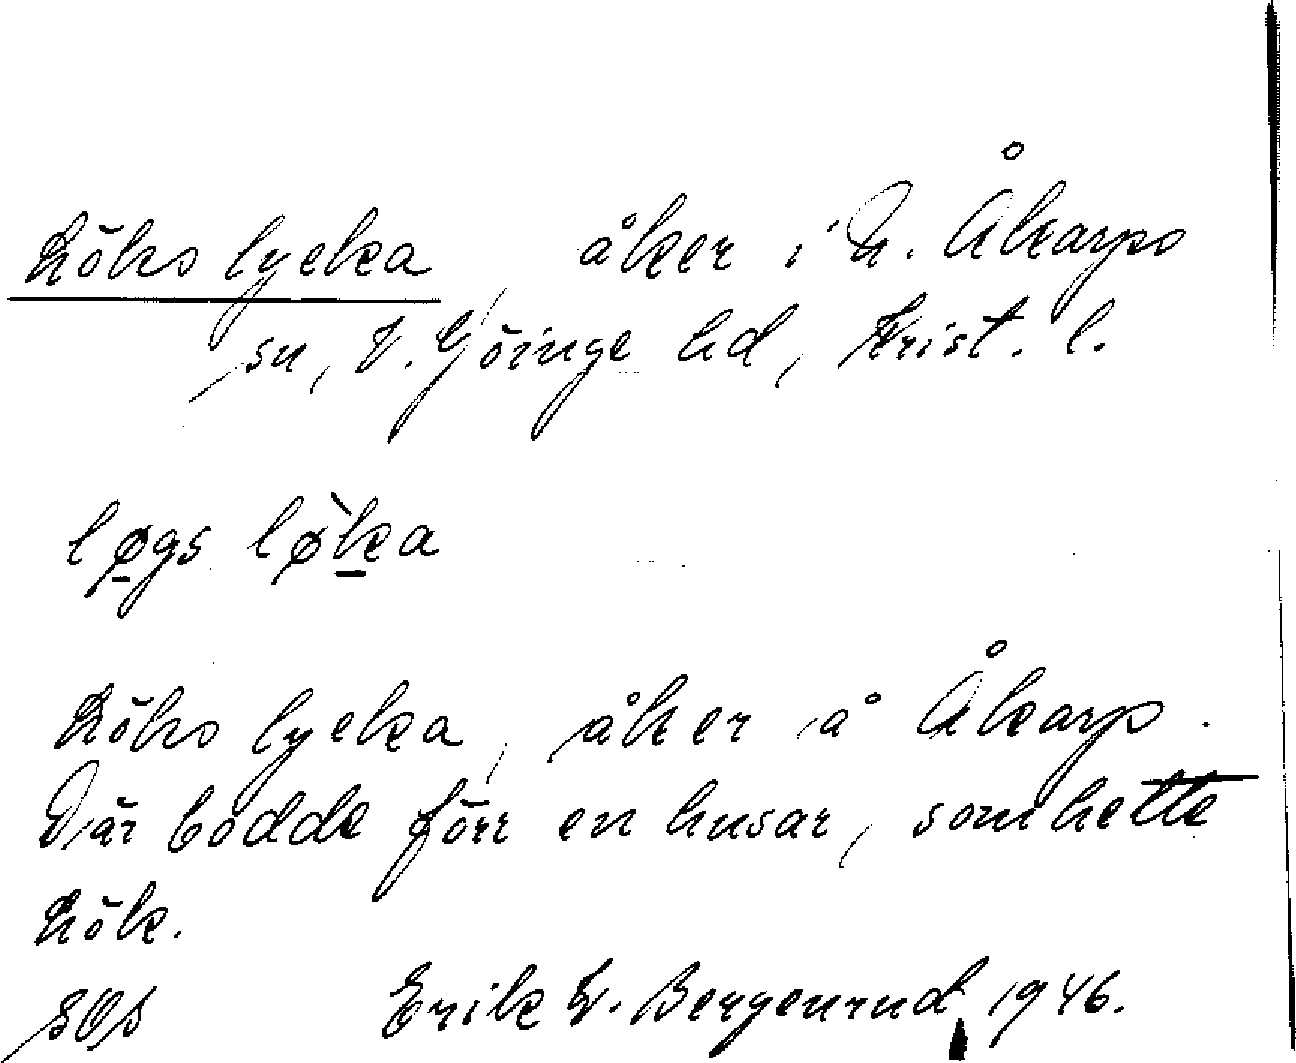 Löks lycka, åker i N. Åkarps
sn, V. Göinge hd, Krist. l.
løgs lø̀ka
Löks lycka, åker å Åkarp.
Där bodde förr en husar, som hette
Lök.
Erik Bergenrud 1946.